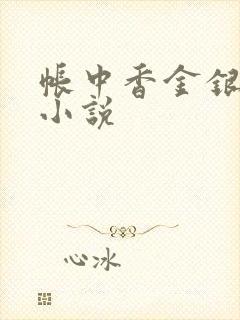 帳中香金銀
小說
心冰